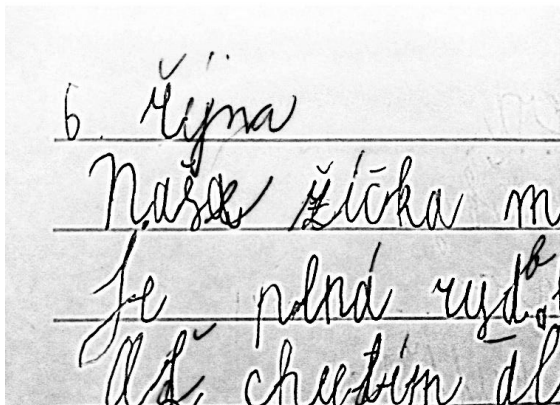 6. října
Naše žíčka m
Je plná ryb
Až chytím dl